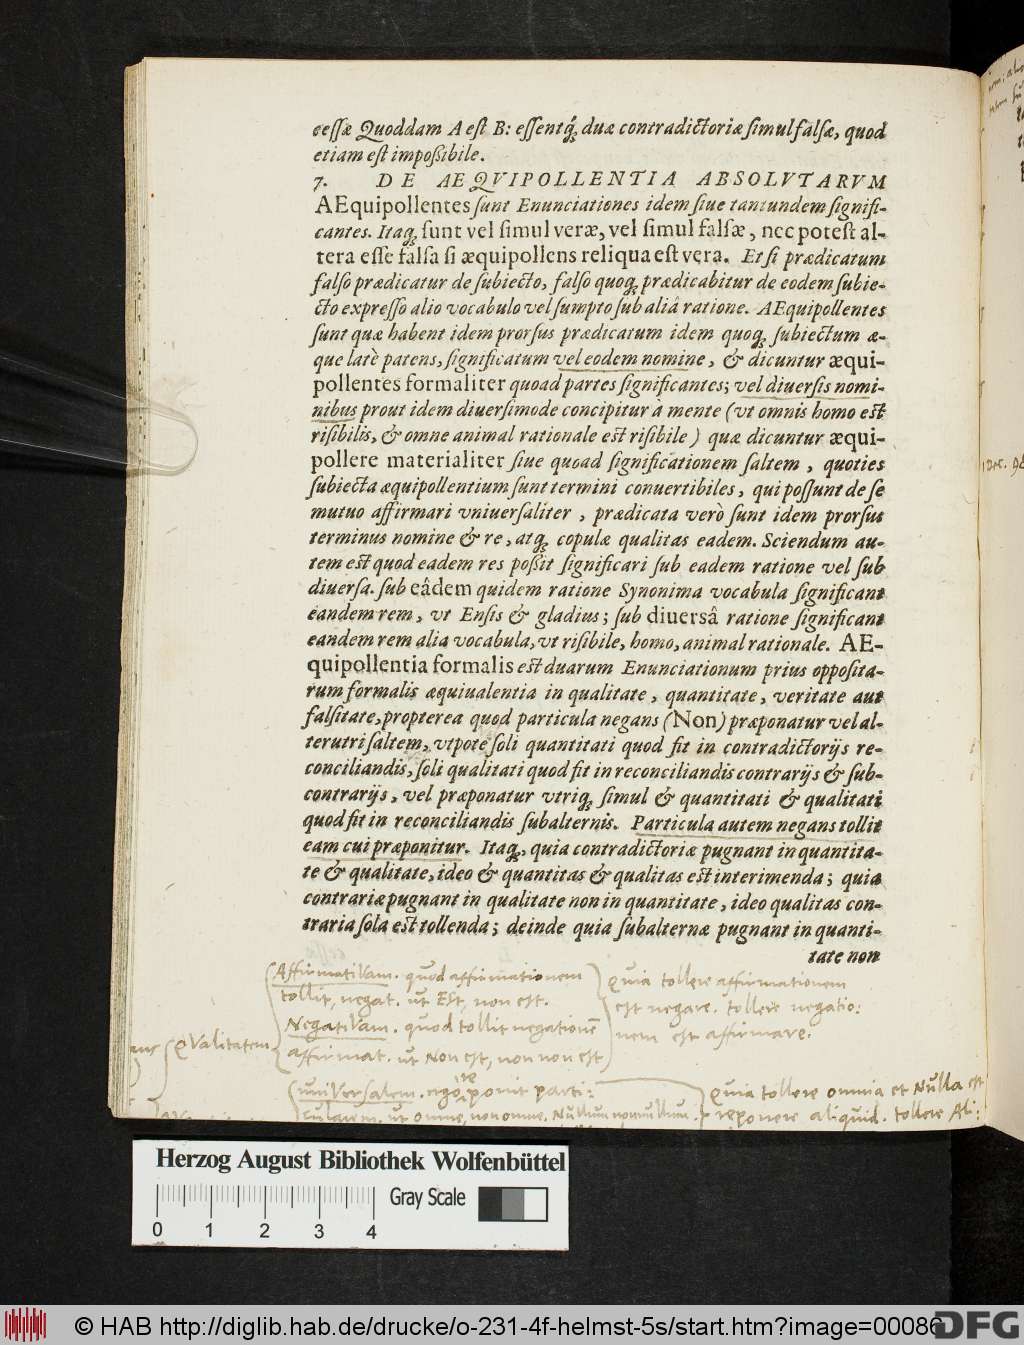 cessæ Quoddam A est B: essentq́ꝫ duæ contradictoriæ simul falsæ, quod
etiam est impoßibile.
7. DE AEQVIPOLLENTIA ABSOLVTARVM
AEquipollentes sunt Enunciationes idem siue tantundem signifi-
cantes. Itaqꝫ sunt vel simul veræ, vel simul falsæ, nec potest al-
tera esse falsa si æquipollens reliqua est vera. Et si prædicatum
falso prædicatur de subiecto, falso quoqꝫ prædicabitur de eodem subie-
cto expresso alio vocabulo vel sumpto sub aliâ ratione. AEquipollentes
sunt quæ habent idem prorsus prædicatum idem quoqꝫ subiectum æ-
que latè patens, significatum vel eodem nomine, & dicuntur æqui-
pollentes formaliter quoad partes significantes; vel diuersis nomi-
nibus prout idem diuersimode concipitur à mente (vt omnis homo est
risibilis, & omne animal rationale est risibile) quæ dicuntur æqui-
pollere materialiter siue quoad significationem saltem, quoties
subiecta æquipollentium sunt termini conuertibiles, qui possunt de se
mutuo affirmari vniuersaliter, prædicata verò sunt idem prorsus
terminus nomine & re, atqꝫ copulæ qualitas eadem. Sciendum au-
tem est quod eadem res poßit significari sub eadem ratione vel sub
diuersa. sub eâdem quidem ratione Synonima vocabula significant
eandem rem, vt Ensis & gladius; sub diuersâ ratione significant
eandem rem alia vocabula, vt risibile, homo, animal rationale. AE-
quipollentia formalis est duarum Enunciationum prius opposita-
rum formalis æquiualentia in qualitate, quantitate, veritate aut
falsitate, propterea quod particula negans (Non) præponatur vel al-
terutri saltem, vtpote soli quantitati quod fit in contradictorijs re-
conciliandis, soli qualitati quod fit in reconciliandis contrarijs & sub-
contrarijs, vel præponatur vtriqꝫ simul & quantitati & qualitati
quod fit in reconciliandis subalternis. Particula autem negans tollit
eam cui præponitur. Itaqꝫ, quia contradictoriæ pugnant in quantita-
te & qualitate, ideo & quantitas & qualitas est interimenda; quia
contrariæ pugnant in qualitate non in quantitate, ideo qualitas con-
traria sola est tollenda; deinde quia subalternæ pugnant in quanti-
tate non
Affirmativam. quod affirmationem
tollit, negat. ut Est, non est.
Negativam. quod tollit negationē
affirmat. ut Non est, non non est
quia tollere affirmationem
est negare. tollere negatio:
nem est affirmare.
qualitatem
universalem. ergo ponit parti:
cularem. ut omne, non omne. Nullum, nonnullum.
quia tollere omnia et Nulla est
reponere aliquid. tollere Ali:
Herzog August Bibliothek Wolfenbüttel
Gray Scale
0 1 2 3 4
© HAB http://diglib.hab.de/drucke/o-231-4f-helmst-5s/start.htm?image=00086
DFG